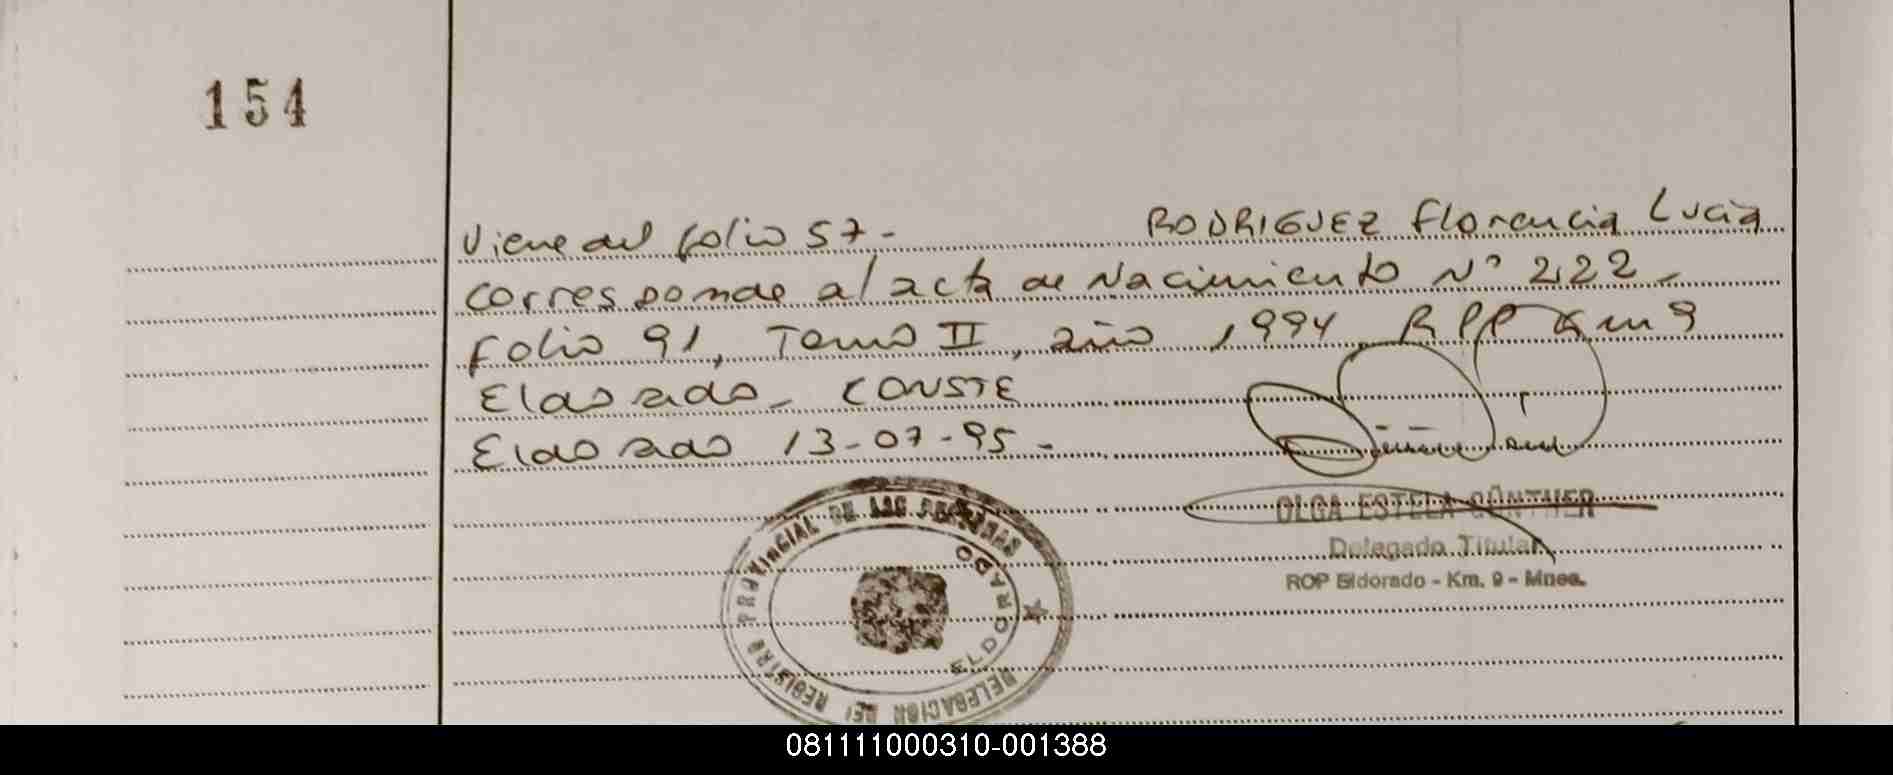 154
Viene del folio 57- RODRIGUEZ Florencia Lucia
Corresponde al acta de Nacimiento N° 222-
folio 91, Tomo II, año 1994 RPP Km 9
Eldorado- CONSTE
Eldorado 13-07-95-
OLGA ESTELA GÜNTHER
Delegado Titular
ROP Eldorado - Km. 9 - Mnes.
DELEGACION DEL REGISTRO PROVINCIAL DE LAS PERSONAS
ELDORADO
081111000310-001388